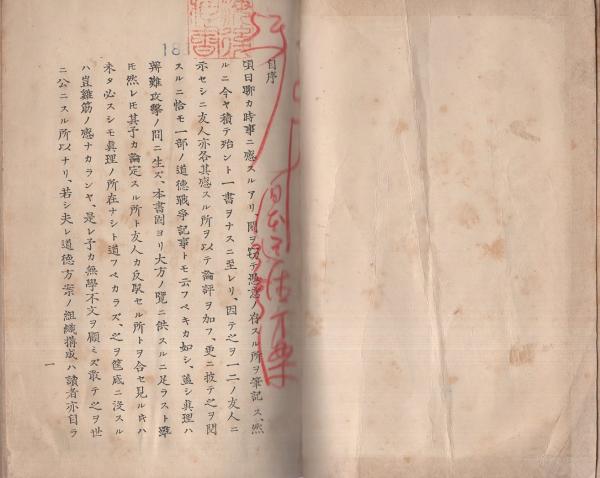 自序
頃日聊カ時事ニ感スルアリ、閑ヲ窃テ愚意ノ存スル所ヲ筆記ス、然
ルニ今ヤ積テ殆ント一書ヲナスニ至レリ、因テ之ヲ一二ノ友人ニ
示セシニ友人亦各其感スル所ヲ以テ論評ヲ加フ、更ニ披テ之ヲ閲
スルニ恰モ一部ノ道徳戦争記事トモ云フベキカ如シ、蓋シ眞理ハ
辨難攻撃ノ間ニ生ズ、本書固ヨリ大方ノ覽ニ供スルニ足ラスト雖
モ然レモ其予カ論定スル所ト友人カ反駁セル所トヲ合セ見ル片ハ
未タ必スシモ眞理ノ所在ナシト道フベカラズ、之ヲ筐底ニ沒スル
ハ豈雞筋ノ感ナカランヤ、是レ予カ無學不文ヲ顧ミズ敢テ之ヲ世
ニ公ニスル所以ナリ、若シ夫レ道徳方案ノ組織構成ハ讀者亦自ラ
一
18